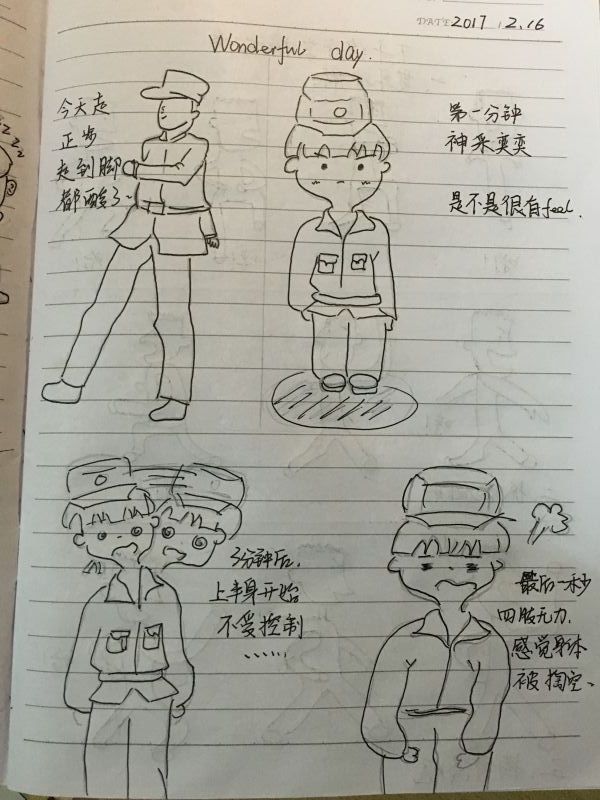 DATE 2017 . 2.16
Wonderful day.
今天走
正步
走到脚
都酸了.
第一分钟
神采奕奕
是不是很有feel.
3分钟后,
上半身开始
不受控制
......
最后一秒
四肢无力.
感觉身体
被掏空.